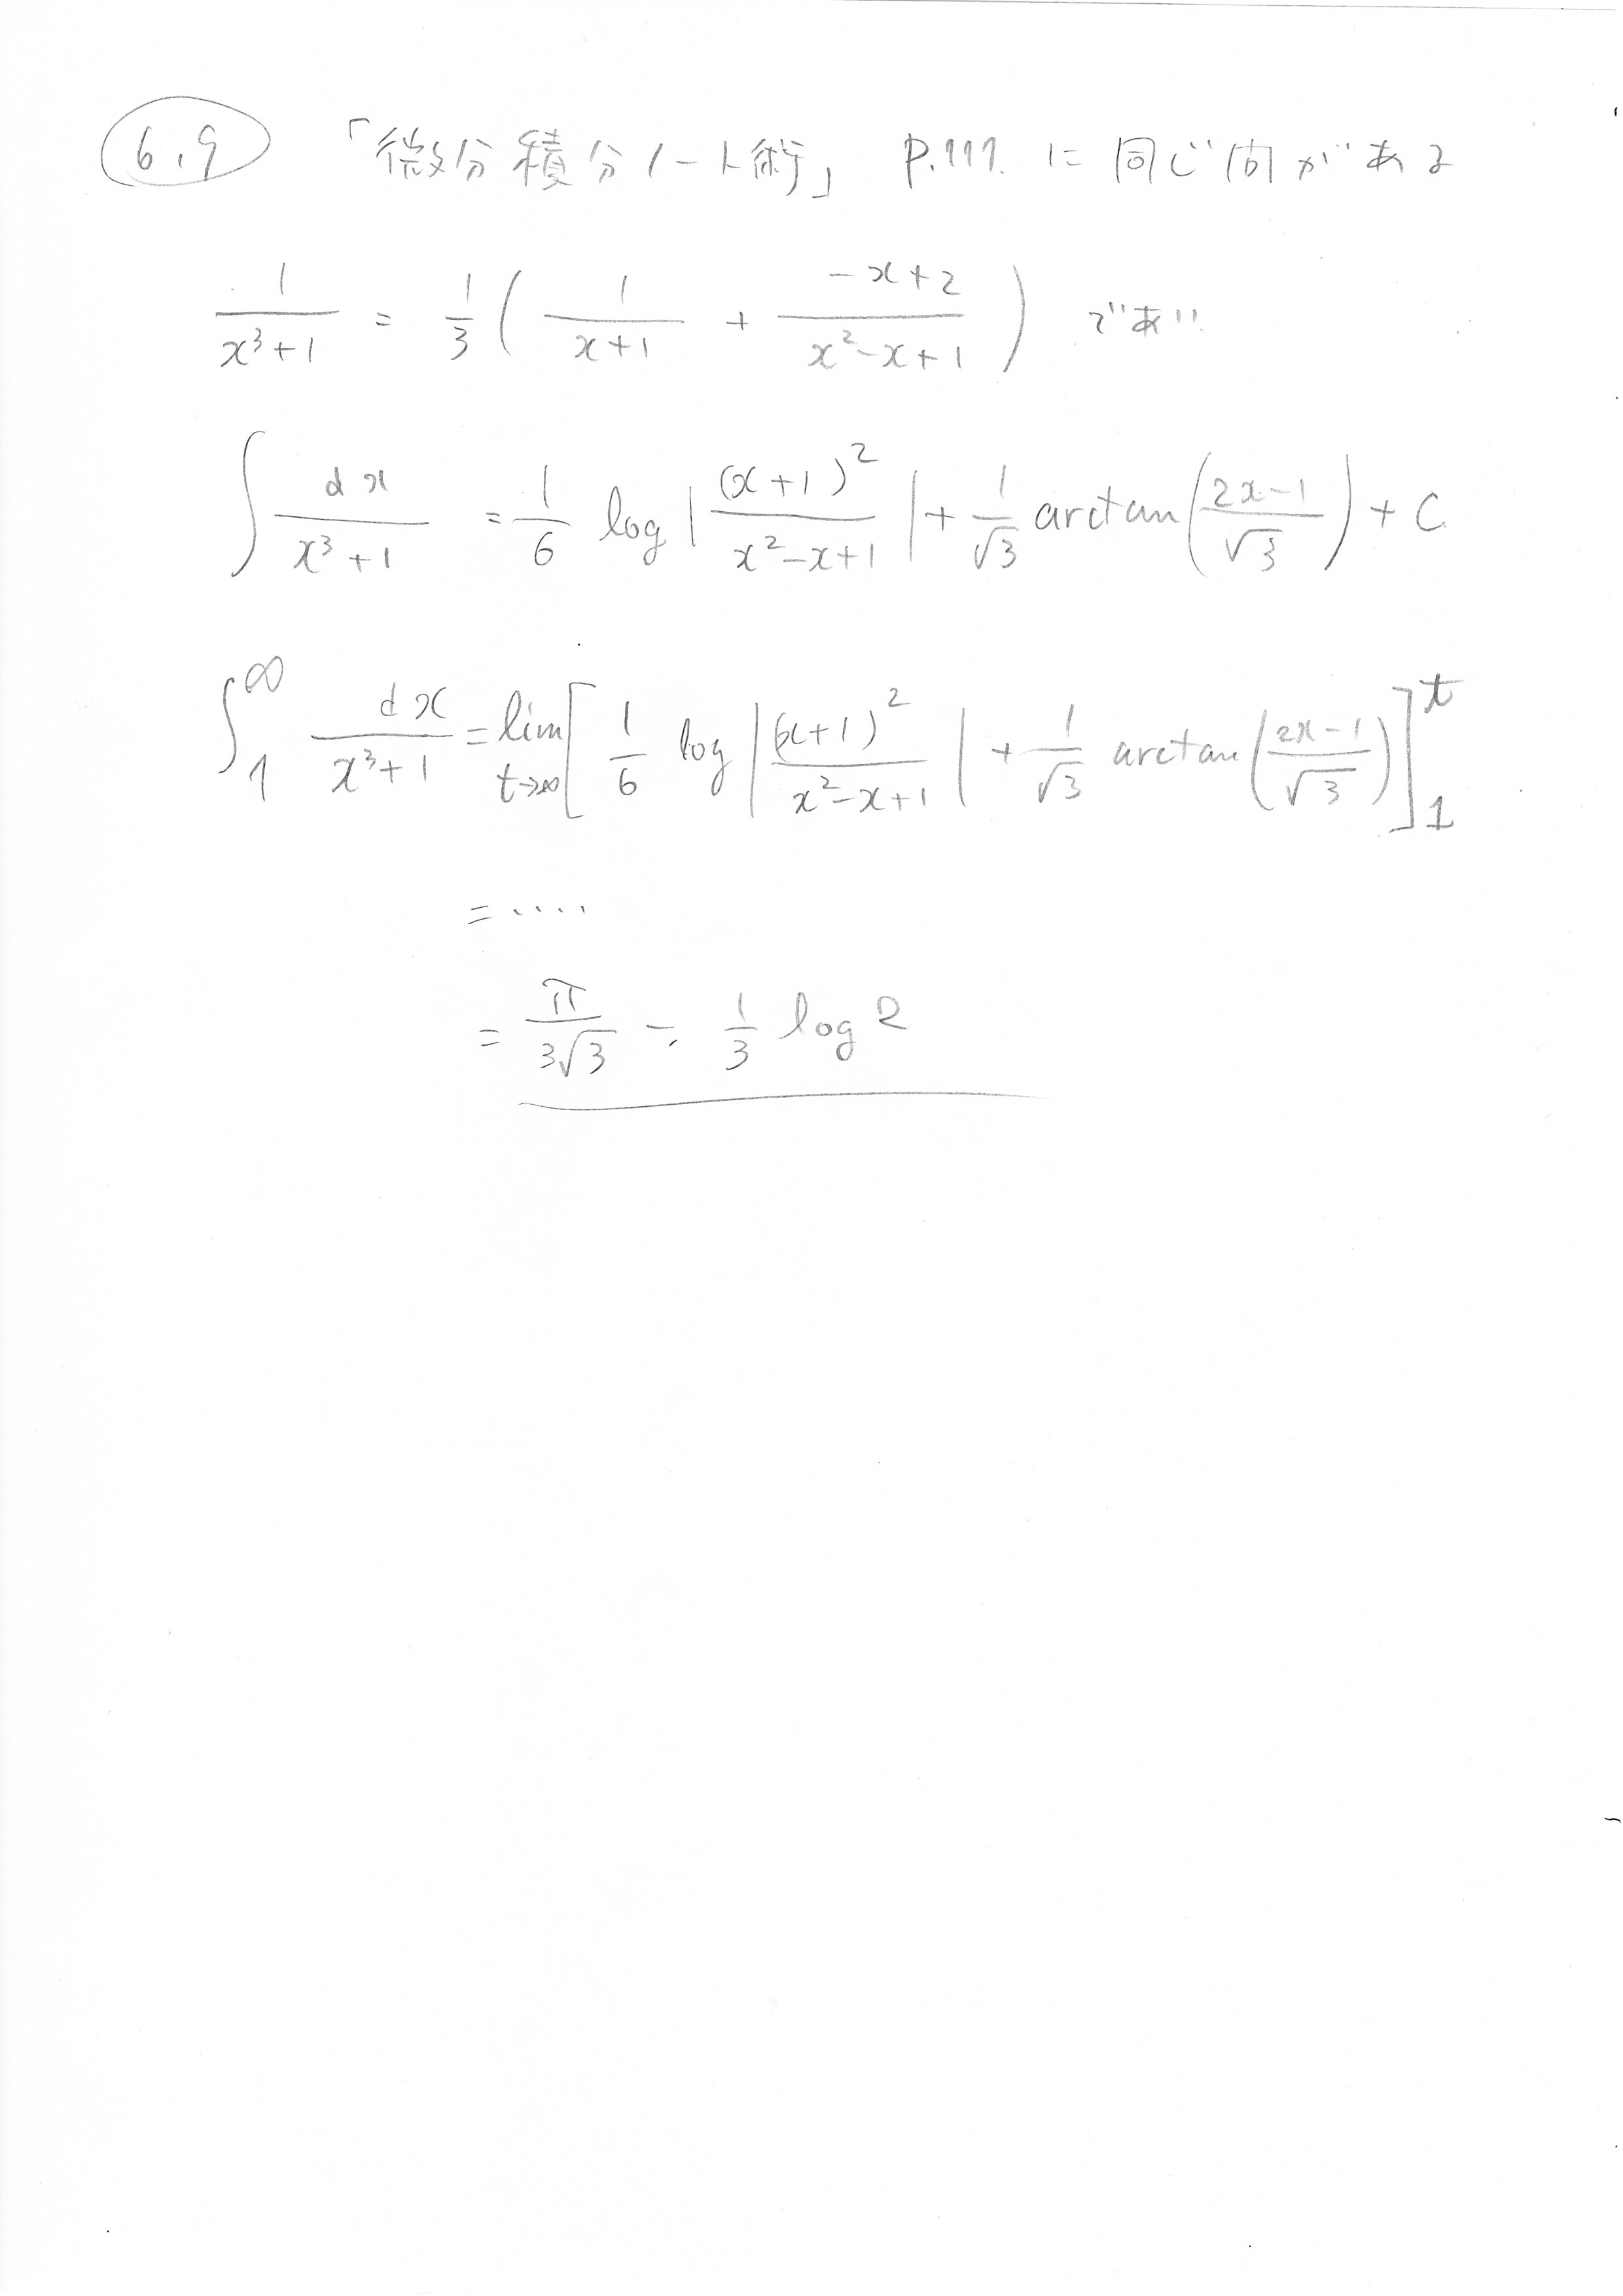 6.9 「微分積分ノート術」 P.111. に同じ問がある
1/(x³+1) = 1/3 ( 1/(x+1) + (-x+2)/(x²-x+1) ) であり
∫ dx/(x³+1) = 1/6 log |(x+1)²/(x²-x+1)| + 1/√3 arctan((2x-1)/√3) + C
∫₁^∞ dx/(x³+1) = lim_{t→∞} [ 1/6 log |(x+1)²/(x²-x+1)| + 1/√3 arctan((2x-1)/√3) ]₁^t
= ‥‥
= π/(3√3) - 1/3 log 2